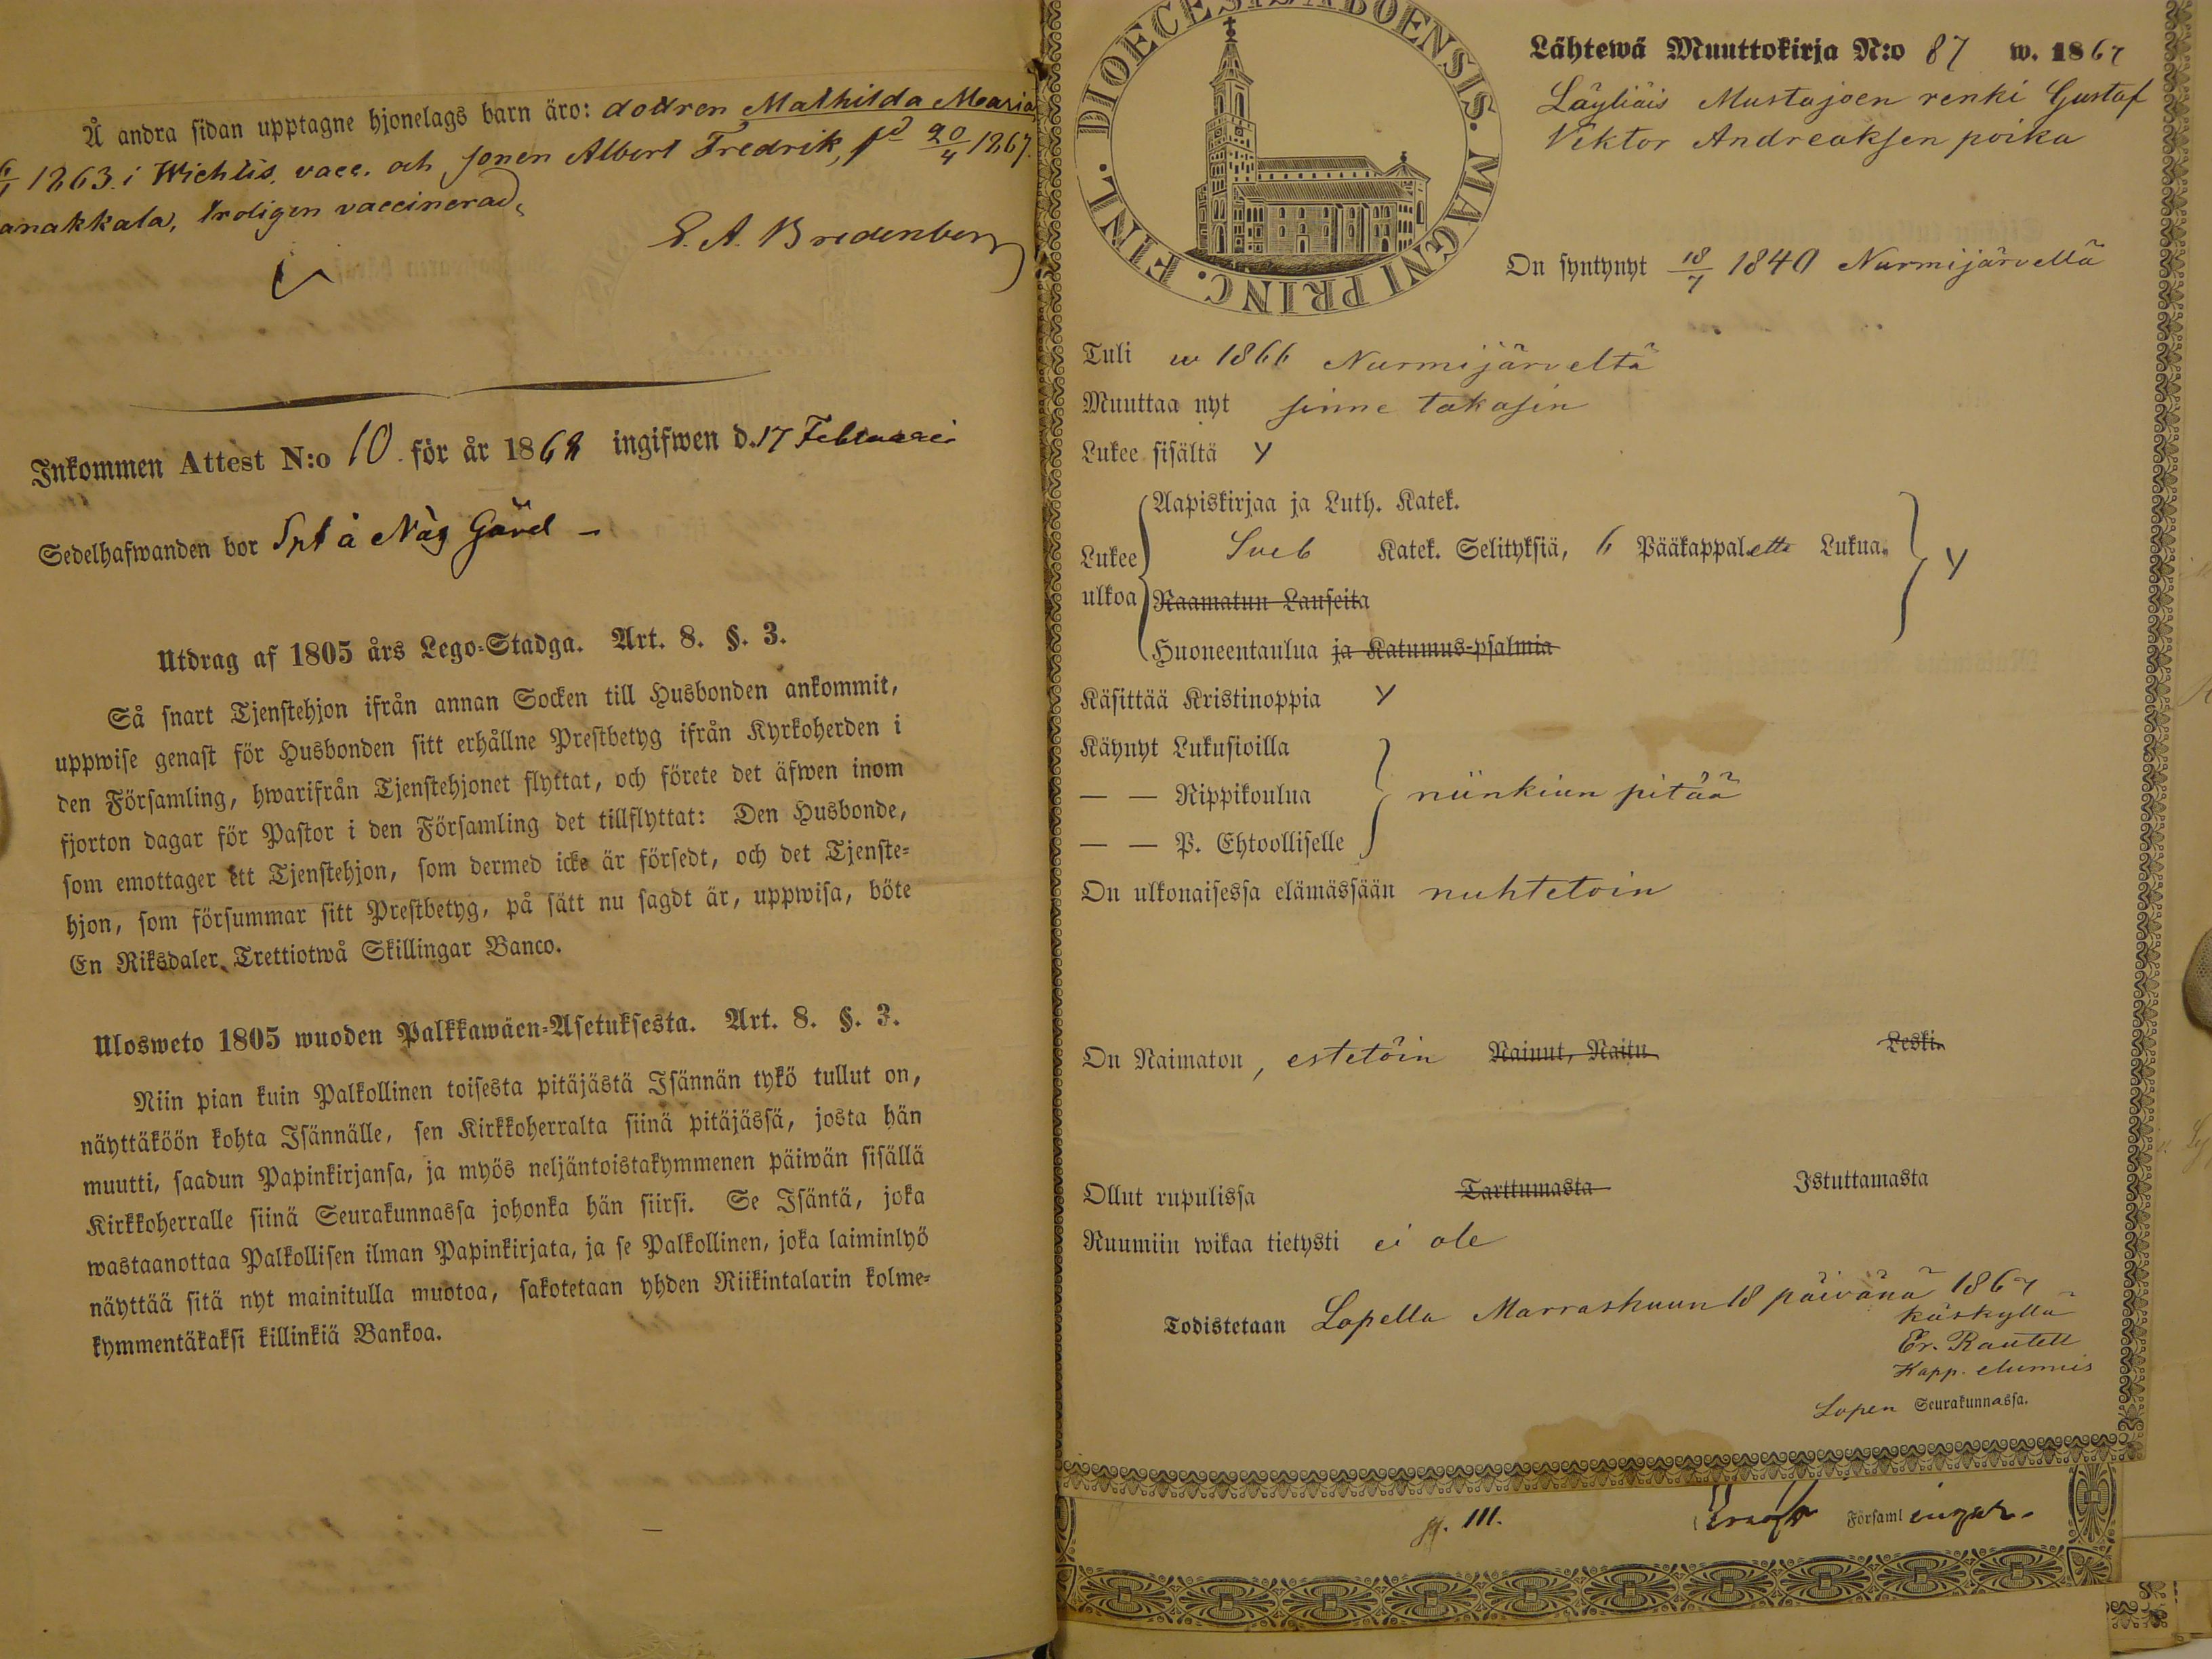 Å andra sidan upptagne hjonelags barn äro: dottren Mathilda Maria
1863. i Wichtis, vacc. och sonen Albert Fredrik, fd 20/4 1867.
anakkala, troligen vaccinerad.
E. A. Bredenberg
Inkommen Attest N:o 10. för år 1868 ingifwen d. 17 Februari
Sedelhafwanden bor Spt å Näs Gård –
Utdrag af 1805 års Lego-Stadga. Art. 8. §. 3.
Så snart Tjenstehjon ifrån annan Socken till Husbonden ankommit,
uppwise genast för Husbonden sitt erhållne Prestbetyg ifrån Kyrkoherden i
den Församling, hwarifrån Tjenstehjonet flyttat, och förete det äfwen inom
fjorton dagar för Pastor i den Församling det tillflyttat: Den Husbonde,
som emottager ett Tjenstehjon, som dermed icke är försedt, och det Tjenste-
hjon, som försummar sitt Prestbetyg, på sätt nu sagdt är, uppwisa, böte
En Riksdaler Trettiotwå Skillingar Banco.
Ulosweto 1805 wuoden Palkkawäen-Asetuksesta. Art. 8. §. 3.
Niin pian kuin Palkollinen toisesta pitäjästä Isännän tykö tullut on,
näyttäköön kohta Isännälle, sen Kirkkoherralta siinä pitäjässä, josta hän
muutti, saadun Papinkirjansa, ja myös neljäntoistakymmenen päiwän sisällä
Kirkkoherralle siinä Seurakunnassa johonka hän siirsi. Se Isäntä, joka
wastaanottaa Palkollisen ilman Papinkirjata, ja se Palkollinen, joka laiminlyö
näyttää sitä nyt mainitulla muotoa, sakotetaan yhden Riikintalarin kolme-
kymmentäkaksi killinkiä Bankoa.
DIOECESIS ABOENSIS. MAGNI PRINC. FINL.
Lähtewä Muuttokirja N:o 87 w. 1867
Läyliäis Mustajoen renki Gustaf
Viktor Andreaksen poika
On syntynyt 18/7 1840 Nurmijärvellä
Tuli w 1866 Nurmijärveltä
Muuttaa nyt sinne takasin
Lukee sisältä y
Aapiskirjaa ja Luth. Katek.
Lukee ulkoa Sveb Katek. Selityksiä, 6 Pääkappaletta Lukua. y
Raamatun Lauseita
Huoneentaulua ja Katumus-psalmia
Käsittää Kristinoppia y
Käynyt Lukusioilla
— — Rippikoulua niinkuin pitää
— — P. Ehtoolliselle
On ulkonaisessa elämässään nuhtetoin
On Naimaton, estetöin Nainut, Naitu Leski
Ollut rupulissa Tarttumasta Istuttamasta
Ruumiin wikaa tietysti ei ole
Todistetaan Lopella Marraskuun 18 päivänä 1867
käskyllä
Er. Rautell
Kapp.
Lopen Seurakunnassa.
111. Församlingar.